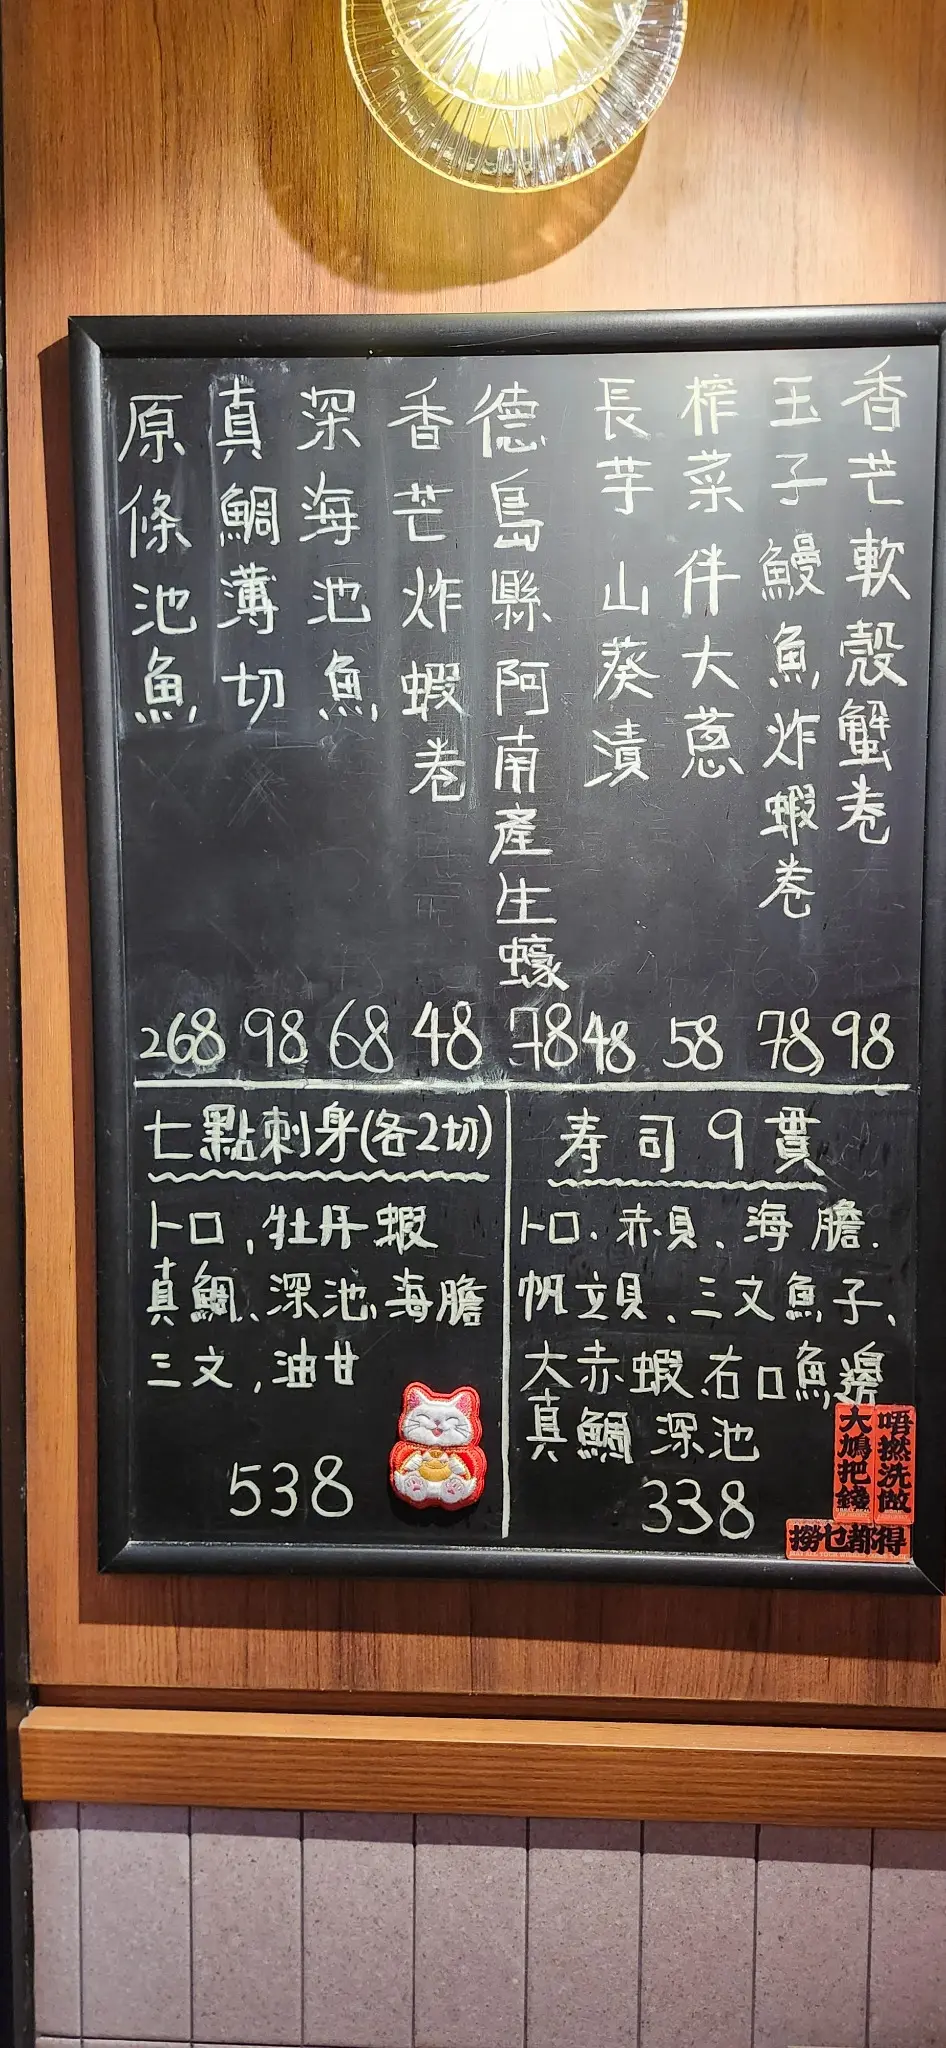 香芒軟殼蟹卷 98
玉子鰻魚炸蝦卷 78
榨菜伴大葱 58
長芋山葵漬 48
德島縣阿南產生蠔 78
香芒炸蝦卷 48
深海池魚 68
真鯛薄切 98
原條池魚 268
七點刺身(各2切)
トロ,牡丹蝦
真鯛、深池、海膽
三文,油甘
538
寿司9貫
トロ、赤貝、海膽、
帆立貝、三文魚子、
大赤蝦、右口魚邊
真鯛 深池
338
唔撚洗做
大鳩把錢
撈乜都得